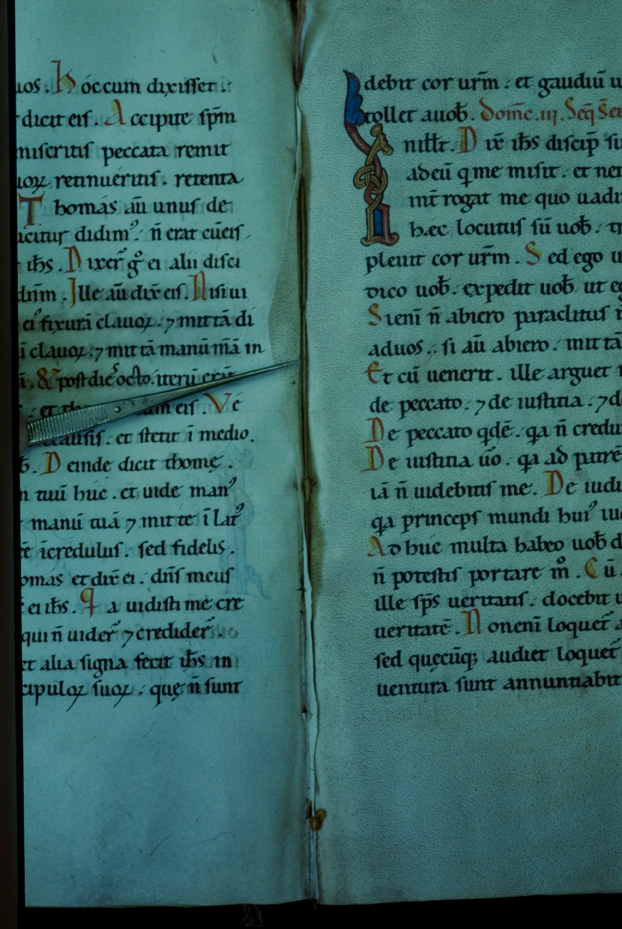 uos. Hoc cum dixisset.
dicit eis. Accipite sp̄m
miseritis peccata remit
uoꝝ retinueritis. retenta
Thomas aū unus de
icitur didim᷒. n̄ erat cū eis.
ih̄s. Dixer̄ g̊ ei alii disci
dn̄m. Ille aū dix̄ eis. Nisi ui
ei᷒ fixurā clauoꝝ. ⁊ mittā di
ū clauoꝝ. ⁊ mittā manū m̄ā in
. & post dies octo. iterū erāt
. et th um eis. Ve
clausis. et stetit ī medio.
b̄. Deinde dicit thomę.
m tuū huc. et uide man᷒
manū tuā ⁊ mitte ī lat᷒
e īcredulus. sed fidelis.
omas et dix̄ ei. dn̄s meus
ei ih̄s. Q̄a uidisti me cre
qui n̄ uider̄ ⁊ credider̄.
et alia signa fecit ih̄s in
cipuloꝝ suoꝝ. quę n̄ sunt
debit cor ur̄m. et gaudiū u
tollet a uob̄. Domc̄. iii. Seq̄ sc̄i
In illt̄. Dix̄ ih̄s discip̄ su
ad eū q̄ me misit. et ne
int̄rogat me quo uadi
hęc locutus sū uob̄. tr
pleuit cor ur̄m. Sed ego u
dico uob̄. expedit uob̄ ut eg
Si eni n̄ abiero paraclitus n
ad uos. si aū abiero. mittā
Et cū uenerit. ille arguet
de peccato. ⁊ de iustitia. ⁊ d
De peccato qd̄ē. q̄a n̄ credu
De iustitia ūo. q̄a ad patrē
iā n̄ uidebitis me. De iudi
q̄a princeps mundi hui᷒ iu
Adhuc multa habeo uob̄ d
n̄ potestis portare m̊. Cū
ille sp̄s ueritatis. docebit u
ueritatē. Non eni loquet̄ a
sed quęcūq; audiet loquet̄
uentura sunt annuntiabit